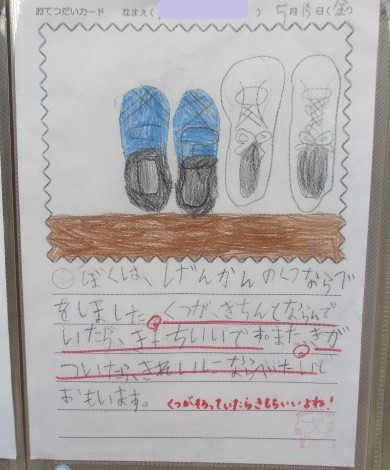 おてつだいカード なまえ( ) 5月18日(金)
ぼくは、しげんかんのくつならで
をしました。くつが、きちんとならんで
いたら、きもちいいです。また、きが
ついたら、きれいにーならべたいと
おもいます。 くつがそろっていたらきもちいいよね!